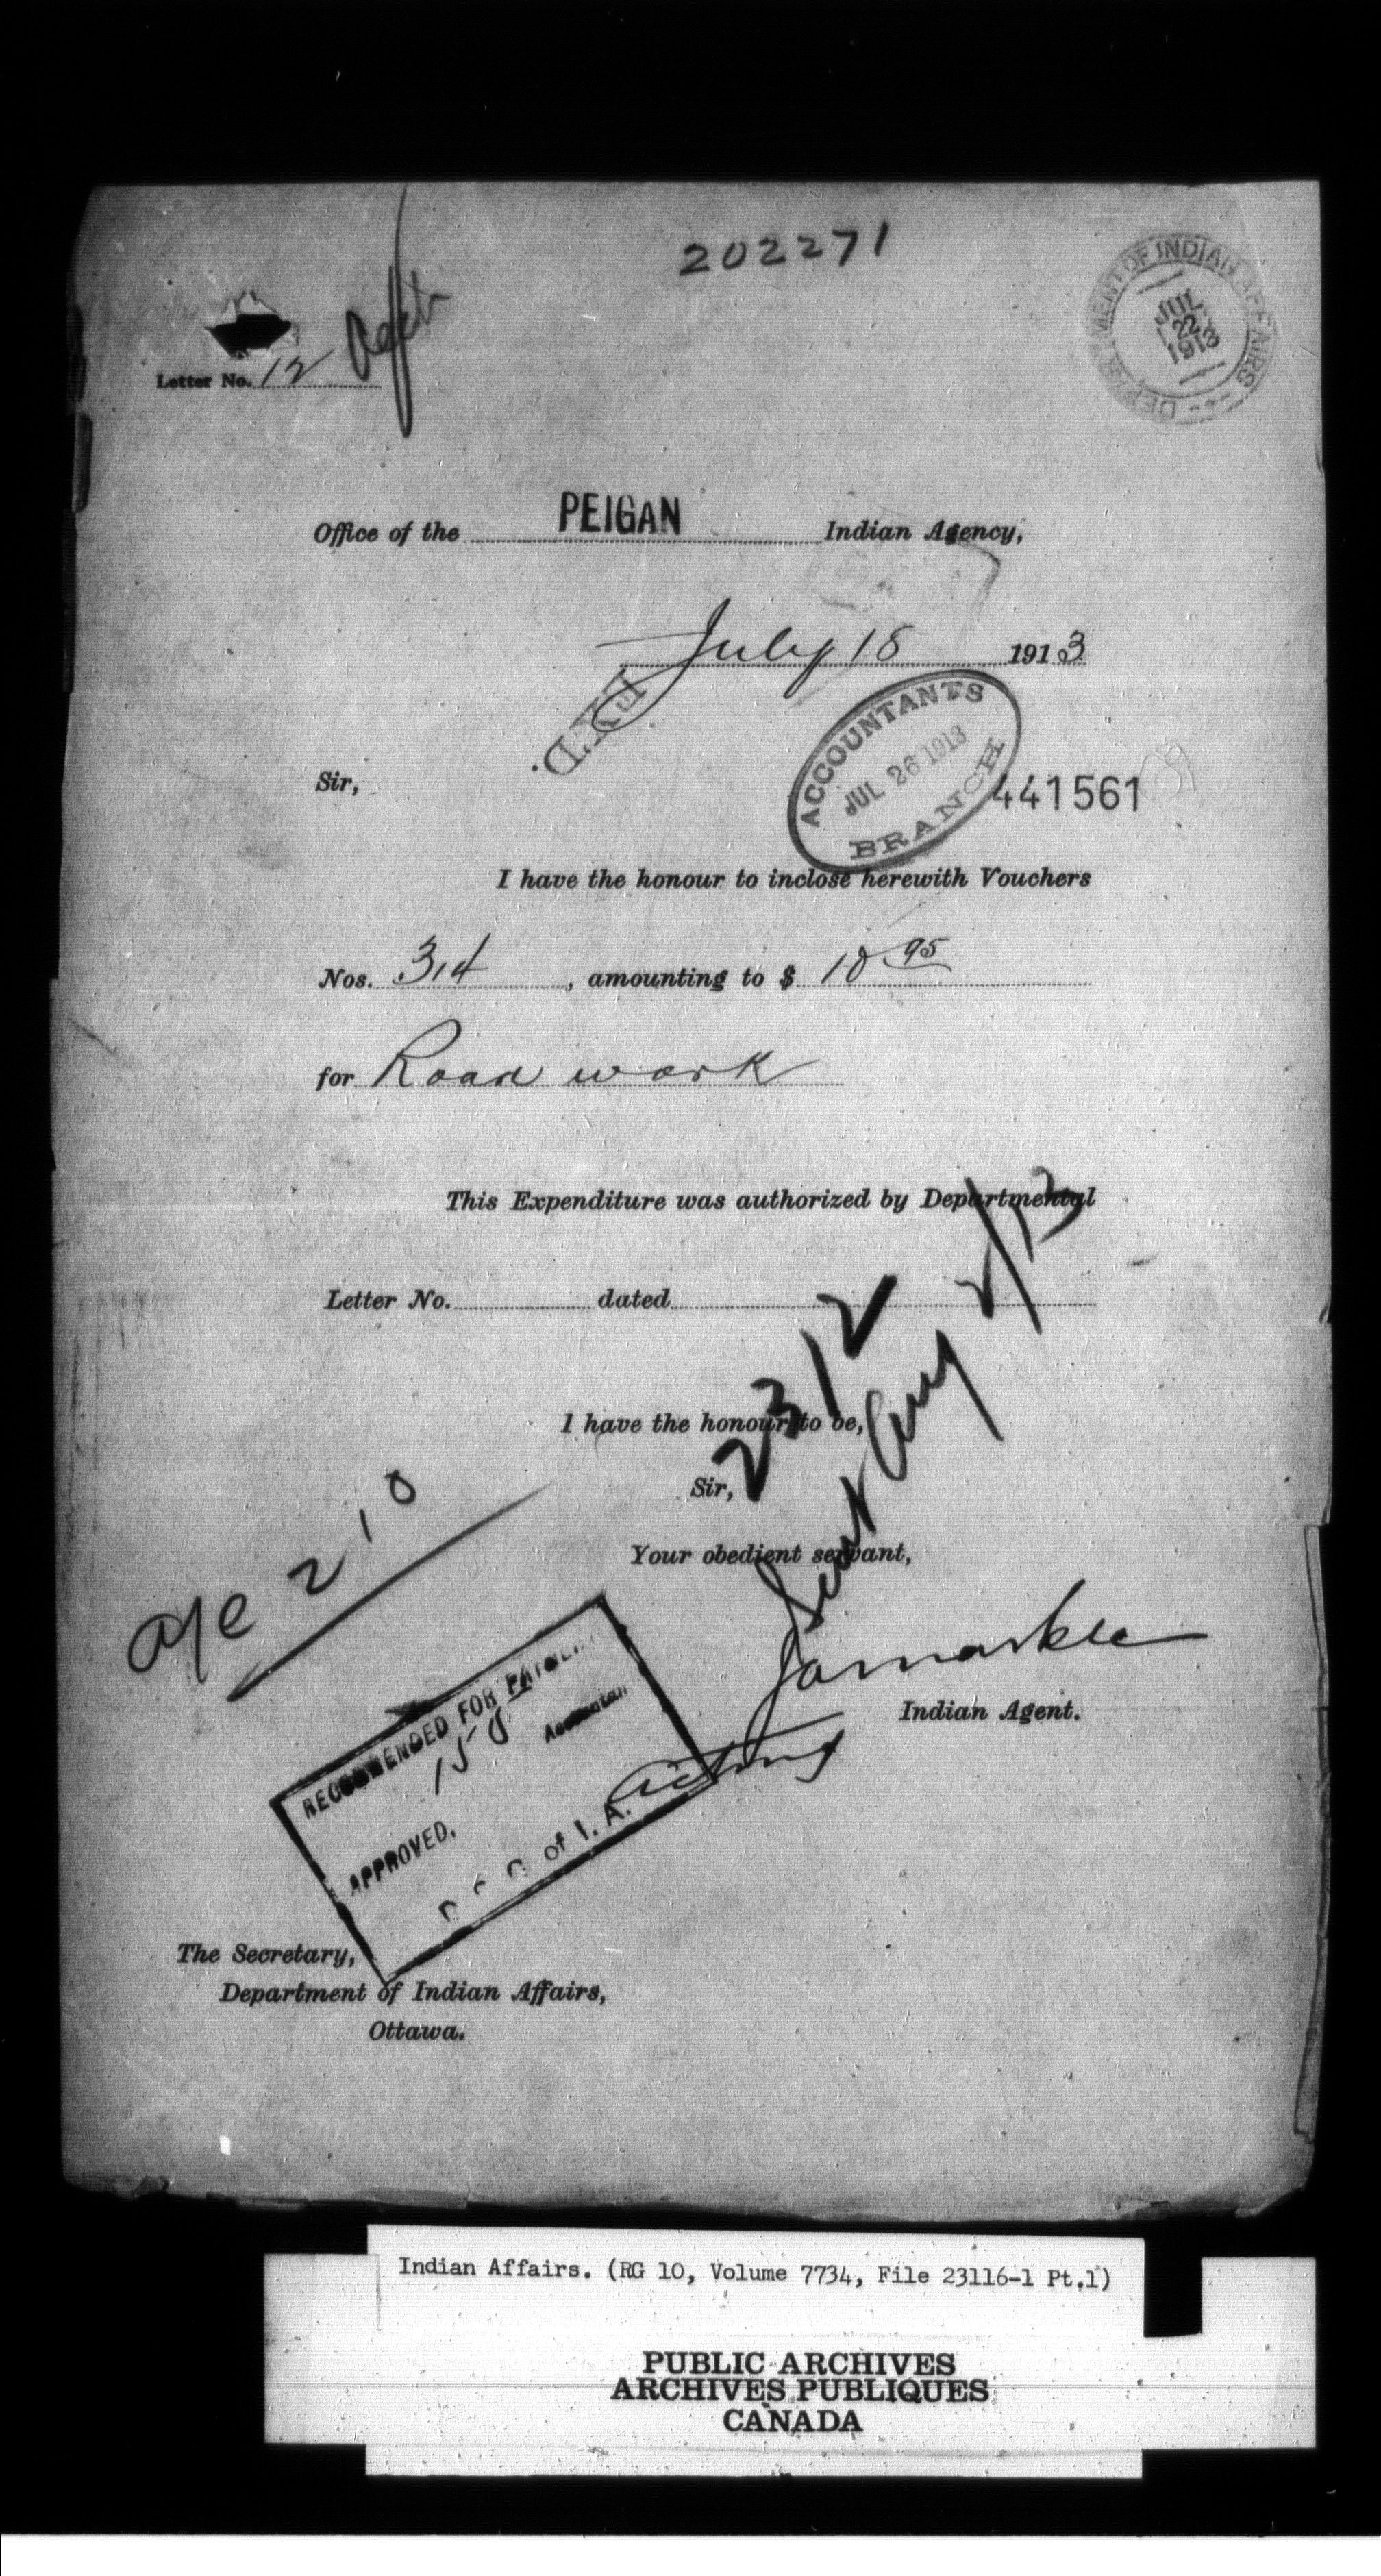 202271
DEPARTMENT OF INDIAN AFFAIRS
JUL
22
1913
Letter No. 12
Office of the PEIGAN Indian Agency,
July 18 1913
EX'D.
ACCOUNTANTS
JUL 26 1913
BRANCH
Sir,
441561
I have the honour to inclose herewith Vouchers
Nos. 3, 4, amounting to $ 18 95
for Road work
This Expenditure was authorized by Departmental
Letter No. dated
2312
Sent Aug 2/13
I have the honour to be,
Sir,
Your obedient servant,
a/c 210
J A Markle
Indian Agent.
Acting
RECOMMENDED FOR PAYMENT
Accountant
APPROVED.
of I. A.
The Secretary,
Department of Indian Affairs,
Ottawa.
Indian Affairs. (RG 10, Volume 7734, File 23116-1 Pt.1)
PUBLIC ARCHIVES
ARCHIVES PUBLIQUES
CANADA